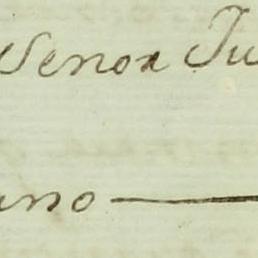 Senor Ju
uno